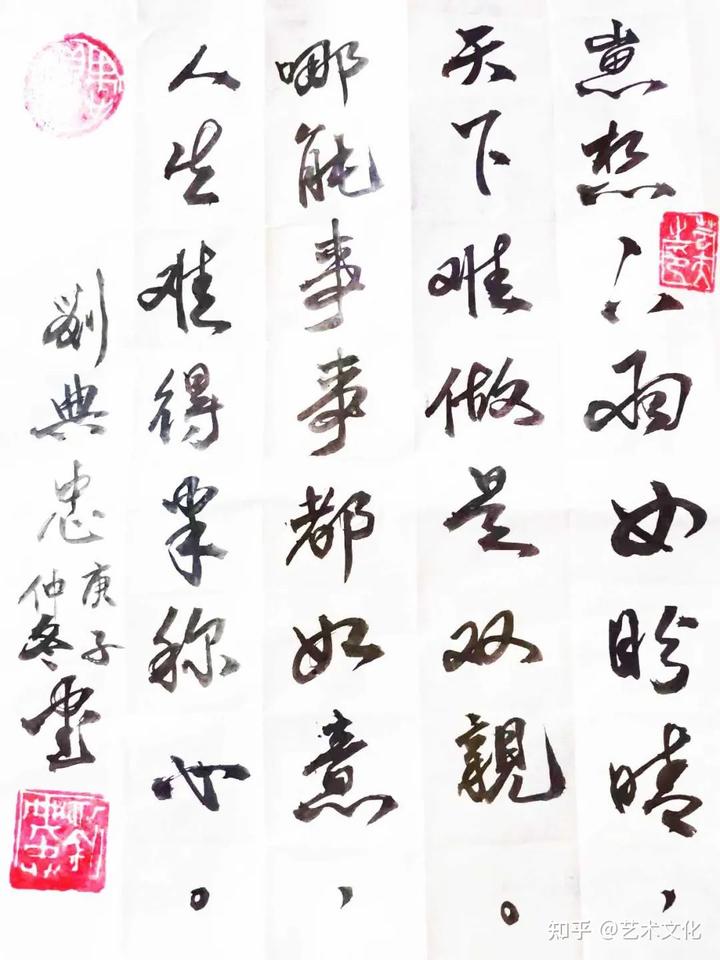 崽想下雨女盼晴，
天下难做是双親。
哪能事事都如意，
人生难得半称心。
劉典忠
庚子
仲冬書
知乎 @艺术文化